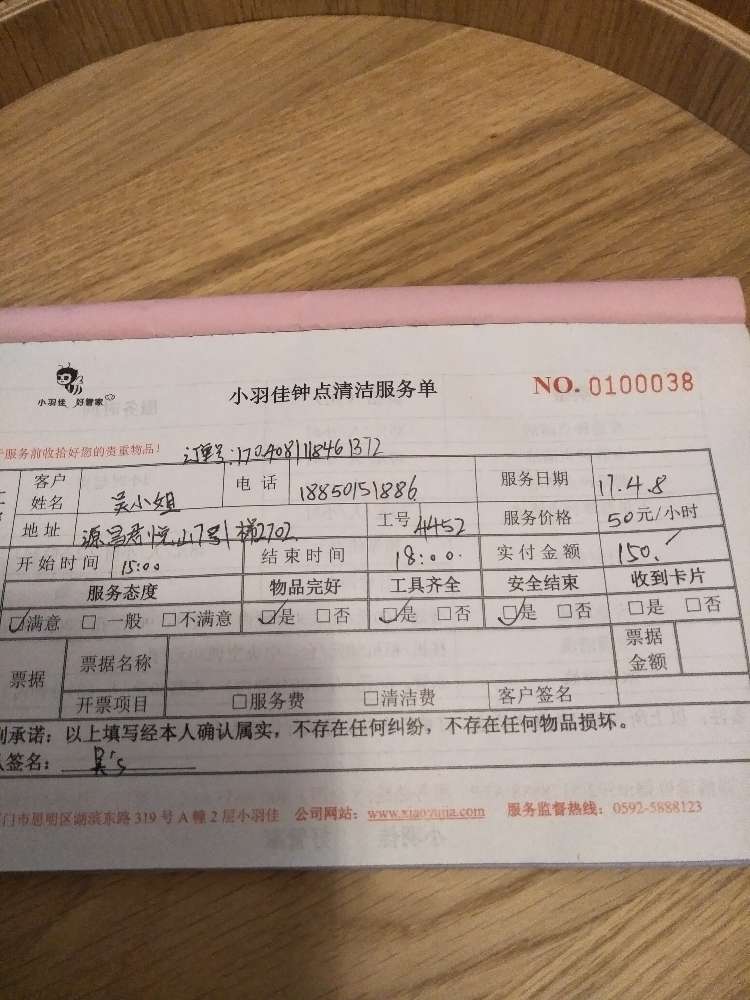 小羽佳 好管家
小羽佳钟点清洁服务单 NO. 0100038
服务前收拾好您的贵重物品!
订单号:1704081118461372
客户姓名 吴小姐 电话 18850151886 服务日期 17.4.8
地址 源昌君悦山17号1梯2702 工号 4452 服务价格 50元/小时
开始时间 15:00 结束时间 18:00 实付金额 150.
服务态度 物品完好 工具齐全 安全结束 收到卡片
☑满意 □一般 □不满意 ☑是 □否 ☑是 □否 ☑是 □否 □是 □否
票据 票据名称 票据金额
开票项目 □服务费 □清洁费 客户签名
承诺:以上填写经本人确认属实,不存在任何纠纷,不存在任何物品损坏。
签名: 吴's
门市思明区湖滨东路319号A幢2层小羽佳 公司网站:www.xiaoyujia.com 服务监督热线:0592-5888123